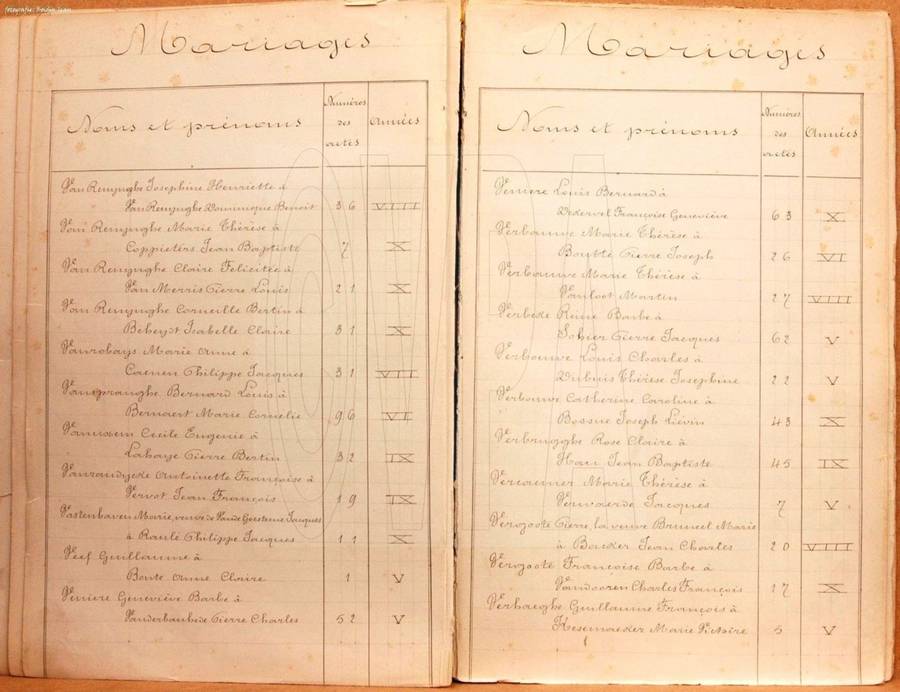 Mariages
Noms et prénoms
Numéros des actes
Années
Van Remynghe Josephine Henriette à
Van Remynghe Dominique Benoit 36 VIII
Van Remynghe Marie Thérèse à
Coppieters Jean Baptiste 7 X
Van Remynghe Claire Felicitée à
Van Merris Pierre Louis 21 X
Van Remynghe Corneille Bertin à
Beheydt Isabelle Claire 31 X
Vanrobays Marie Anne à
Caenen Philippe Jacques 31 VII
Bernard Louis à
Bernaert Marie Cornelie 96 VI
Cecile Eugenie à
Lahaye Pierre Bertin 32 IX
Vanzandycke Antoinette Françoise à
Vervot Jean François 19 IX
Vastenhaven Marie, veuve de Jacques
à Raulé Philippe Jacques 11 X
Veef Guillaume à
Bonte Anne Claire 1 V
Veniere Geneviève Barbe à
Pierre Charles 52 V
Mariages
Noms et prénoms
Numéros des actes
Années
Veniere Louis Bernard à
Françoise Geneviève 63 X
Verbauwe Marie Thérèse à
Boutté Pierre Joseph 26 VI
Verbauwe Marie Thérèse à
Vanloot Martin 27 VIII
Verbeke Reine Barbe à
Sohier Pierre Jacques 62 V
Verboeuve Louis Charles à
Dubuis Thérèse Josephine 22 V
Verbouwe Catherine Caroline à
Bossue Joseph Liévin 43 X
Verbrugghe Rose Claire à
Hau Jean Baptiste 45 IX
Vercaemer Marie Thérèse à
Vervaerde Jacques 7 V
Pierre, la veuve Bruneel Marie
à Boucker Jean Charles 20 VIII
Françoise Barbe à
Vandooren Charles François 17 X
Verhaeghe Guillaume François à
Kesemaeker Marie Victoire 5 V